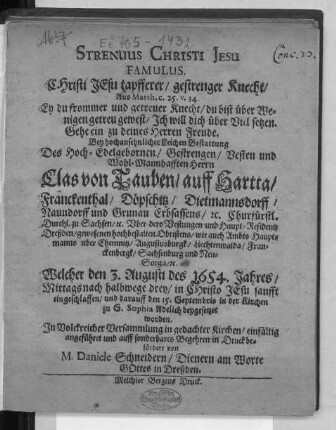 1657
Ec 705 - 1432
Conc. 23.
STRENUUS CHRISTI JESU
FAMULUS.
CHristi JEsu tapfferer/ gestrenger Knecht/
Aus Matth. c. 25. v. 34.
Ey du frommer und getreuer Knecht/ du bist über We-
nigen getreu gewest/ Ich will dich über Viel setzen.
Gehe ein zu deines Herren Freude.
Bey hochansehnlicher Leichen Bestattung
Des Hoch-Edelgebornen/ Gestrengen/ Vesten und
Wohl-Mannhafften Herrn
Clas von Tauben/ auff Hartta/
Fränckenthal/ Döpschitz/ Dietmannsdorff/
Naundorff und Grunau Erbsassens/ ꝛc. Churfürstl.
Durchl. zu Sachsen/ ꝛc. Uber dero Vestungen und Haupt-Residentz
Dreßden/ gewesenen hochbestalten Obristens/ wie auch Ambts Haupt-
manns uber Chemnitz/ Augustusburgk/ Liechtenwalda/ Fran-
ckenbergk/ Sachsenburg und Neu-
Sorga/ ꝛc.
Welcher den 3. Augusti des 1654. Jahres/
Mittags nach halbwege drey/ in Christo JEsu sanfft
eingeschlaffen/ und darauff den 15. Septembris in der Kirchen
zu S. Sophia Adelich beygesetzet
worden.
In Volckreicher Versammlung in gedachter Kirchen/ einfältig
angeführet und auff sonderbares Begehren in Druck be-
fördert von
M. Daniele Schneidern/ Dienern am Worte
GOttes in Dreßden.
Melchior Bergens Druck.